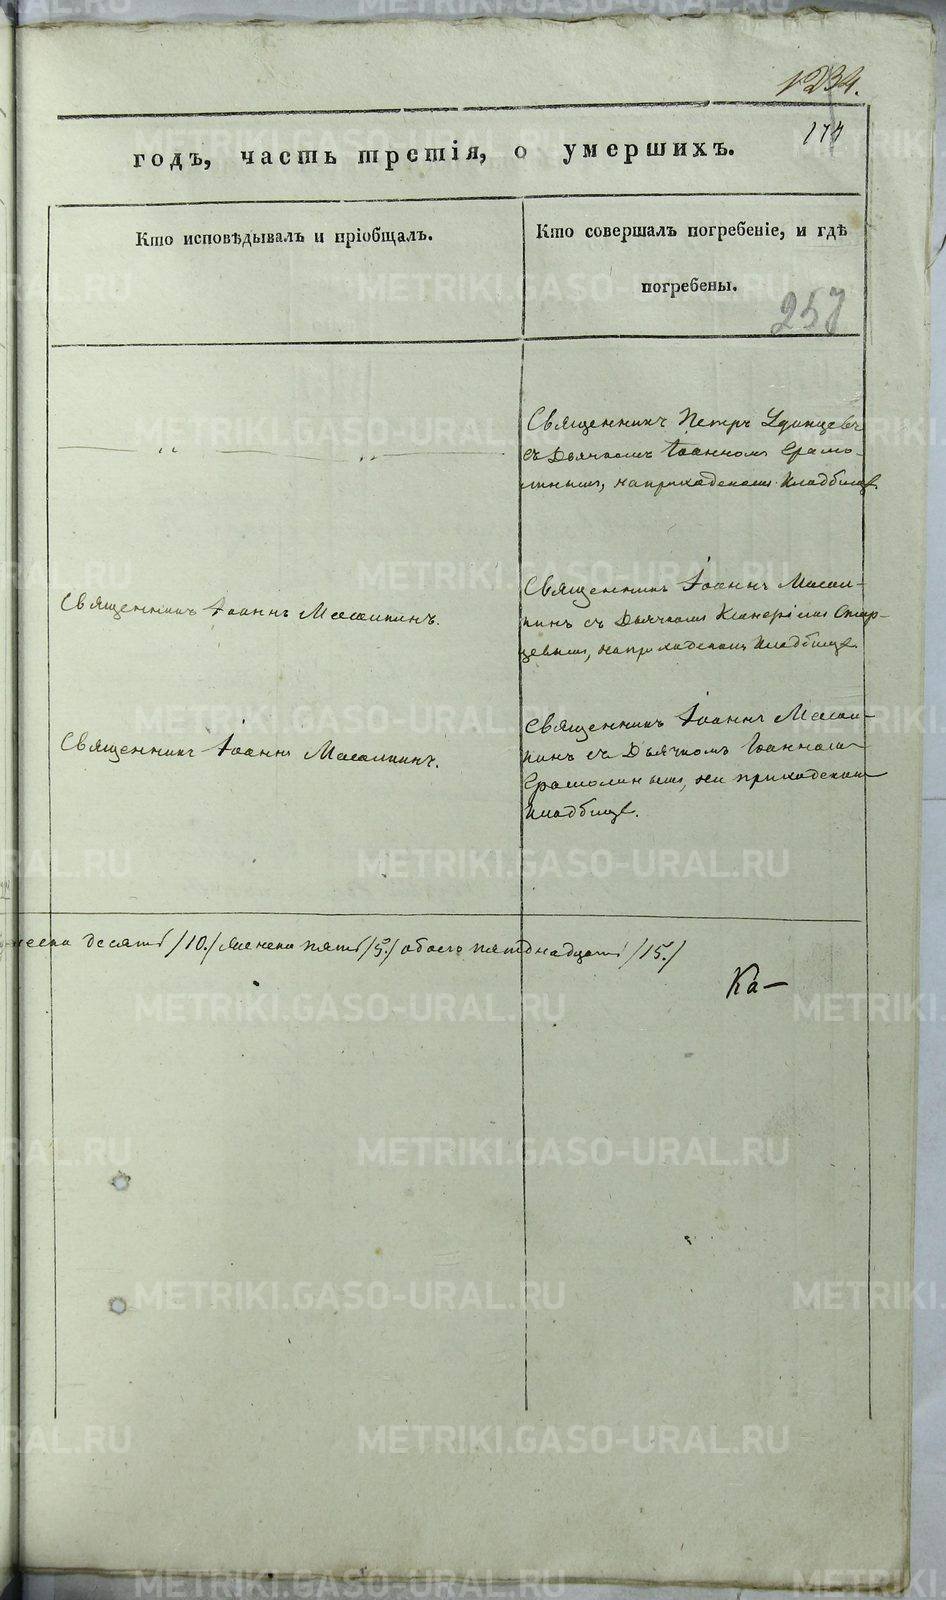 1234.
174
годъ, часть третія, о умершихъ.
Кто исповѣдывалъ и пріобщалъ.
Кто совершалъ погребеніе, и гдѣ
погребены.
257
Священникъ Петръ Удинцевъ
съ Дьячкомъ Іоанномъ Ермо-
линымъ, на приходскомъ кладбищѣ.
Священникъ Іоаннъ Масалкинъ.
Священникъ Іоаннъ Масал-
кинъ съ Дьячкомъ
цевымъ, на приходскомъ кладбищѣ.
Священникъ Іоаннъ Масалкинъ.
Священникъ Іоаннъ Масал-
кинъ съ Дьячкомъ Іоанномъ
Ермолинымъ, на приходскомъ
кладбищѣ.
десять /10./ женска пять /5./ обоего пятнадцать /15./
Ка-
METRIKI.GASO-URAL.RU